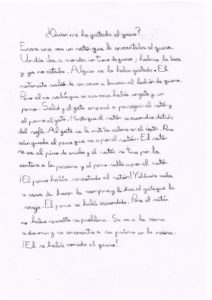 ¿Quién me ha quitado el queso?
Erase una vez un ratón que le encantaba el queso.
Un día iba a merendar un trozo de queso y había
y ya no estaba. Alguien se lo había quitado. El
ratoncito salió de su casa a buscar al ladrón de queso.
Pero él no sabía que en esa casa había un gato y un
perro. Salió y el gato empezó a perseguir al ratón y
el perro al gato. Hasta que el ratón se escondió detrás
del sofá. Al gato se le metió la cabeza en el cesto. Pero
aún queda el perro que va a por el ratón. El ratón
se va al piso de arriba y el ratón se tira por la
ventana a la piscina y el perro salta a por el ratón.
¡El perro había rescatado al ratón! Y el dueño vuelve
a casa de hacer la compra y le dio al gato que la
recoja. El perro se había escondido. Pero el ratón
no había resuelto su problema. Se va a la cama
a dormir y se encuentra a su primo en la cama.
¡Él se había comido el queso!